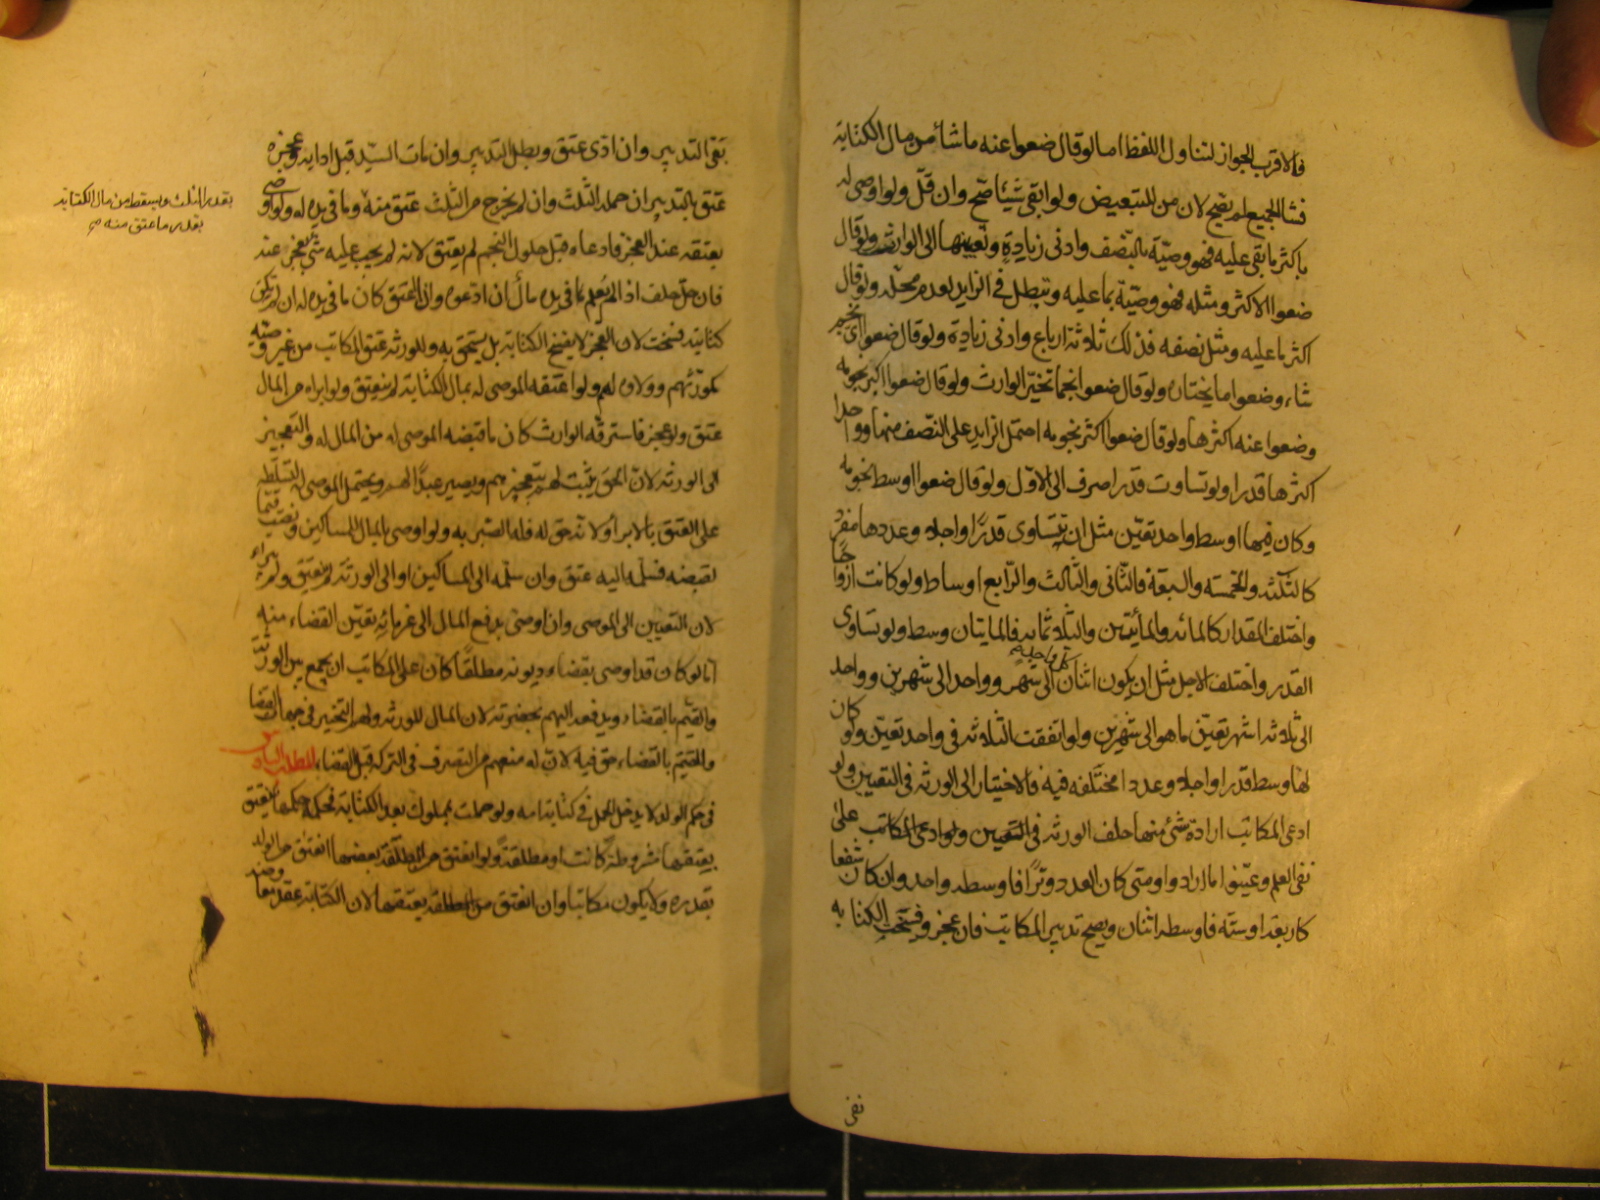 فالاقرب الجواز لتناول اللفظ اما لو قال ضعوا عنه ما شاء من مال الكتابة
فشاء الجميع لم يصح لان من للتبعيض ولو ابقى شيئا صح وان قل ولو اوصى له
باكثر ما بقى عليه فهو وصية بالنصف وادنى زيادة وتعيينها الى الوارث ولو قال
ضعوا الاكثر ومثله فهو وصية بما عليه وتبطل فى الزايد لعدم محله ولو قال
اكثر ما عليه ومثل نصفه فذلك ثلاثة ارباع وادنى زيادة ولو قال ضعوا اى نجم
شاء وضعوا ما يختاره ولو قال ضعوا نجما تخير الوارث ولو قال ضعوا اكبر نجومه
وضعوا عنه اكثرها ولو قال ضعوا اكثر نجومه احتمل الزايد على النصف منها وواحدا
اكثرها قدرا ولو تساوت قدرا صرف الى الاول ولو قال ضعوا اوسط نجومه
وكان فيها اوسط واحد تعين مثل ان تتساوى قدرا واجلا وعددها مفرد
كالثلثة والخمسة والسبعة فالثانى والثالث والرابع اوساط ولو كانت ازواجا
واختلف المقدار كالمائة والمأتين والثلاثمائة فالمايتان وسط ولو تساوى
القدر واختلف الاجل مثل ان يكون اثنان كل واحد الى شهر وواحد الى شهرين وواحد
الى ثلاثة اشهر تعين ما هو الى شهرين ولو اتفقت الثلاثة فى واحد تعين ولو كان
لها وسط قدرا واجلا وعددا مختلفه فيه فالاختيار الى الورثة فى التعيين ولو
ادعى المكاتب ارادة شئ منها حلف الورثة فى التعيين ولو ادعى المكاتب على
نفى العلم وعينوا ما ارادوا ومتى كان العدد وترا فاوسطه واحد وان كان شفعا
كاربعة او ستة فاوسطه اثنان ويصح تدبير المكاتب فان عجز وفسخت الكتابه
بقى التدبير وان ادى عتق وبطل التدبير وان مات السيد قبل ادايه وعجزه
عتق بالتدبير ان حمله الثلث وان لم يخرج من الثلث عتق منه وما فى يده له ولو اوصى
بقدر الثلث ويسقط من مال الكتابة
بقدر ما عتق منه صح
بعتقه عند العجز فادعاه قبل حلول النجم لم يعتق لانه لم يجب عليه شئ يعجز عنه
فان حل حلف اذا لم يعلم بما فى يده مال ان ادعوه واذا عتق كان ما فى يده له ان لم تكن
كتابته فسخت لان العجز لا يفسخ الكتابة بل يستحق به وللورثة عتق المكاتب من غير وصيه
كمورثهم وولاؤه لهم ولو اعتقه الموصى له بمال الكتابة لم ينعتق ولو ابراه من المال
عتق ولو عجز فاسترقه الوارث كان ما قبضه الموصى له من المال له والتعجيز
الى الورثة لان الحق يثبت لهم بتعجيزهم ويصير عبدا لهم ويحتمل الموصى له لتسلطه
على العتق بالابراء ولانه حق له فله الصبر به ولو اوصى بالمال للمساكين ونصب قيما
لقبضه فسلمه اليه عتق وان سلمه الى المساكين او الى الورثة لم يعتق ولم يبراء
لان التعيين الى الموصى وان اوصى بدفع المال الى غرمائه تعين القضاء منه
اما لو كان قد اوصى بقضاء ديونه مطلقا كان على المكاتب ان يجمع بين الورثة
والقيم بالقضاء ويدفعه اليهم بحضرته لان المال للورثة ولهم التخيير فى جهات القضا
وللقيم بالقضاء حق فيه لان له منعهم من التصرف فى التركة قبل القضاء المطلب السادس
فى حكم الولد لا يدخل الحمل فى كتابة امه ولو حملت بمملوك بعد الكتابة فحكمه حكمها يعتق
بعتقها مشروطة كانت او مطلقة ولو انعتق من المطلقة بعضها انعتق من الولد
بقدره ولا يكون مكاتبا وان انعتق من المطلقة بعتقها لان الكتابة عقد معاوضه
نفى